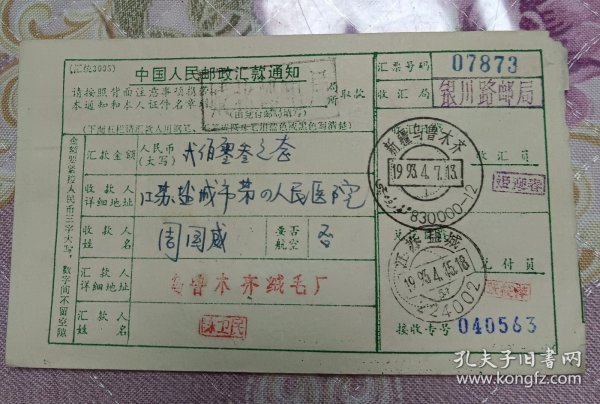 (汇续3005)
中国人民邮政汇款通知
汇票号码 07873
请按照背面注意事项携带
本通知和本人证件名章到
局所取款
收汇局 银川路邮局
(由兑付邮局填写)
金额要紧接人民币三字大写,数字间不留空隙
汇款金额 人民币(大写)
收汇员
收款人详细地址 江苏盐城市第四人民医院
收款人姓名 周国威
是否航空 否
兑付员
汇款人详细地址 乌鲁木齐绒毛厂
汇款人姓名 沐卫民
接收专号 040563
新疆乌鲁木齐
1993.4.7.13
830000-12
江苏盐城
1993.4.15.18
224002
孔夫子旧书网
www.kongfz.com